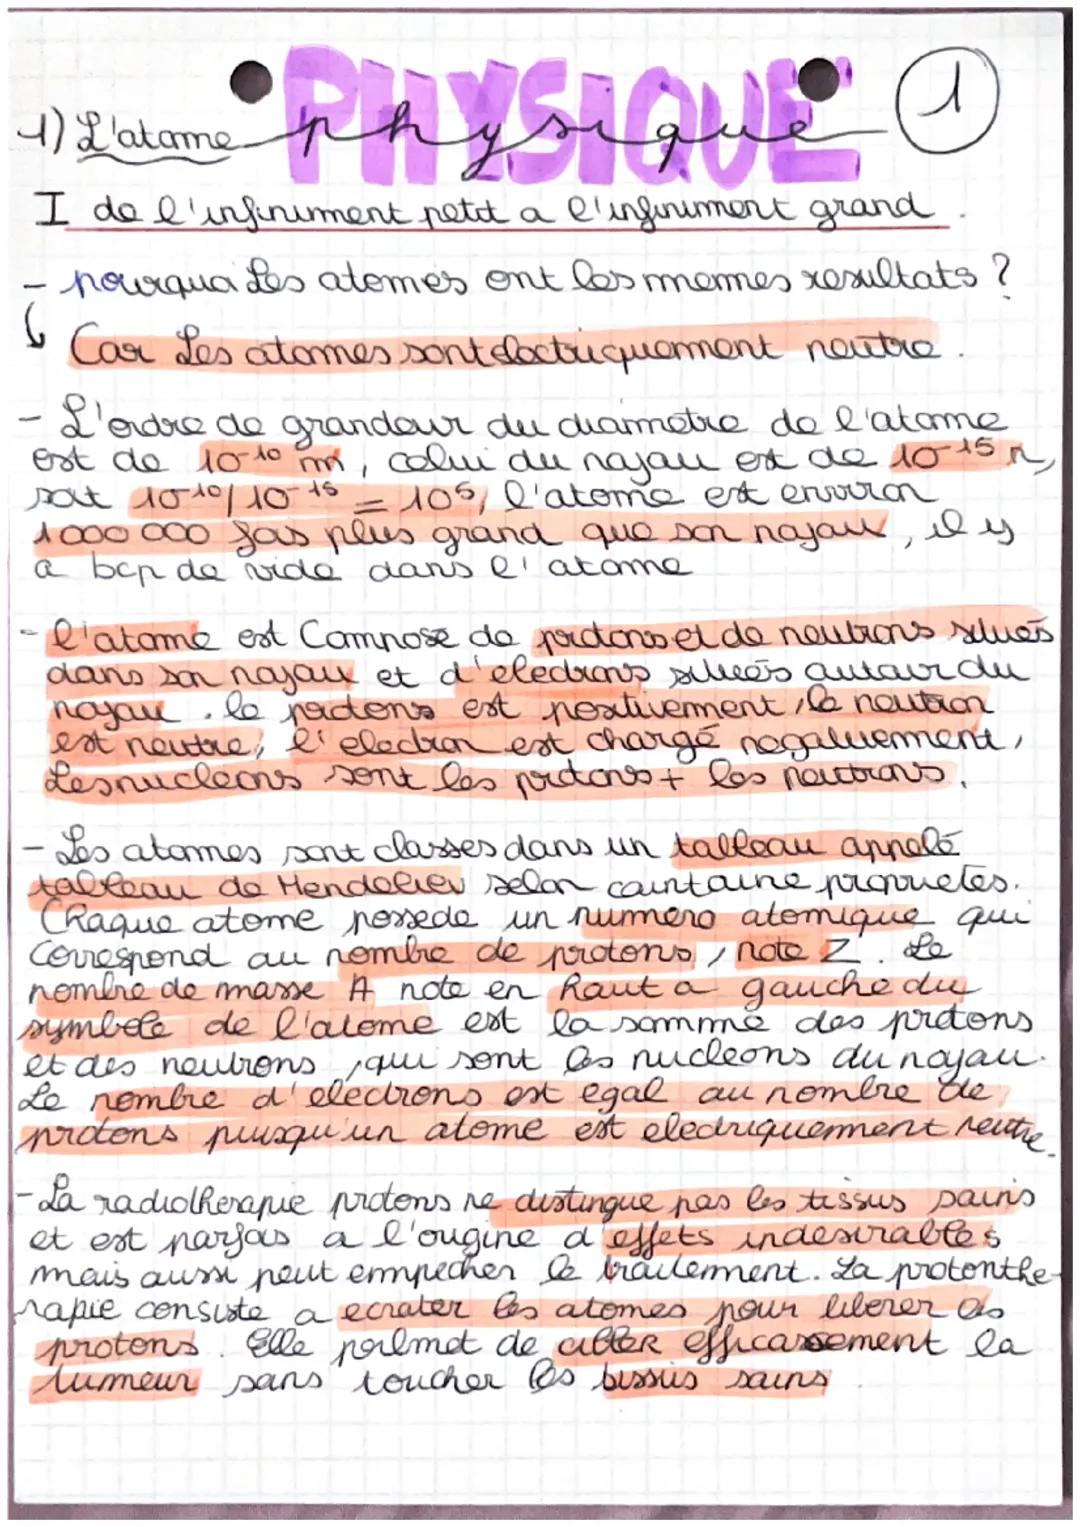 PHYSIQUE
1
1) L'atome physique
I de l'infiniment petit a l'infiniment grand.
- pourquoi Les atomes ont les memes resultats ?
Car Les atomes sont electriquement neutre.
- L'ordre de grandeur du diametre de l'atome
est de 10-10 m, celui du noyau est de 10-15 m,
soit 10-10/10-15 = 10⁵, l'atome est environ
1000 000 fois plus grand que son noyau, il y
a bcp de vide dans l'atome
- l'atome est Composé de protons et de neutrons situés
dans son noyau et d'electrons situés autour du
noyau. le protons est positivement, le neutron
est neutre, l'electron est chargé negativement,
Les nucleons sont les protons + les neutrons.
- Les atomes sont classes dans un tableau appelé
tableau de Mendeliev selon caintaine proprietes.
Chaque atome possede un numero atomique qui
Correspond au nombre de protons, note Z. Le
nombre de masse A note en haut a gauche du
symbole de l'atome est la somme des protons
et des neutrons, qui sont les nucleons du noyau.
Le nombre d'electrons est egal au nombre de
protons puisqu'un atome est electriquement neutre.
- La radiotherapie protons ne distingue pas les tissus sains
et est parfois a l'origine d'effets indesirables
mais aussi peut empecher le traitement. La protonthe-
rapie consiste a ecrater les atomes pour liberer les
protons. Elle permet de cibler efficacement la
tumeur sans toucher les tissus sains